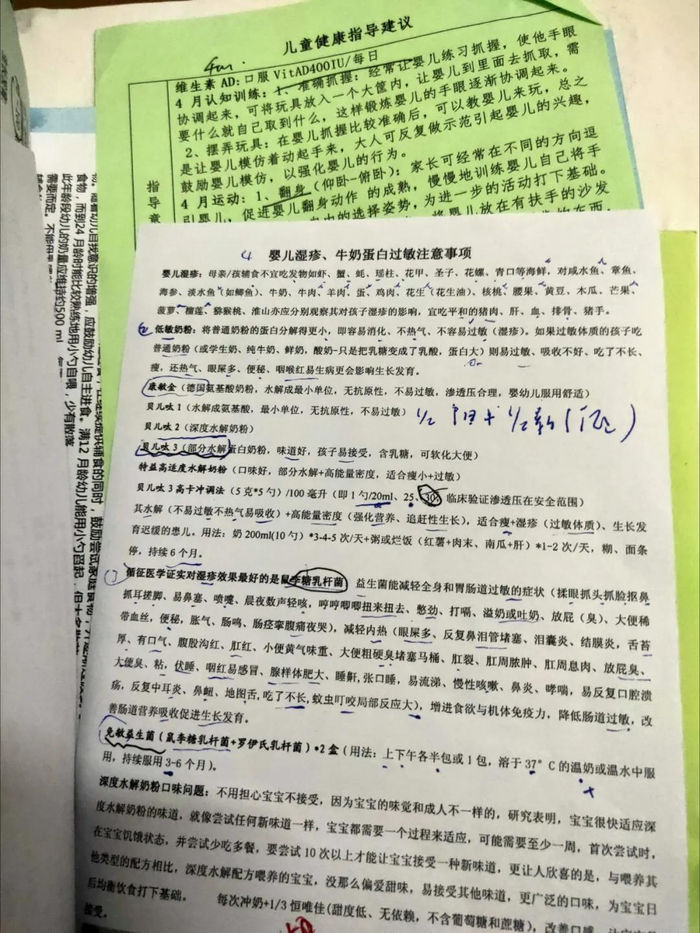 儿童健康指导建议
维生素 AD: 口服 VitAD400IU/每日
4 月认知训练: 1、准确抓握: 经常让婴儿练习抓握, 使他手眼
协调起来, 可将玩具放入一个大筐内, 让婴儿到里面去抓取, 需
要什么就自己取到什么, 这样锻炼婴儿的手眼逐渐协调起来。
2、摆弄玩具: 在婴儿抓握比较准确后, 可以教婴儿来玩, 总之
是让婴儿模仿着动起手来, 大人可反复做示范引起婴儿的兴趣,
鼓励婴儿模仿, 以强化婴儿的行为。
4 月运动: 1、翻身(仰卧-俯卧): 家长可经常在不同的方向逗
引婴儿, 促进婴儿翻身动作 的成熟, 慢慢地训练婴儿自己将手
的选择姿势, 为进一步的活动打下基础。
将婴儿放在有扶手的沙发
指
导
意
物。随着幼儿自我意识的增强, 应鼓励幼儿自主进食。满12 月龄幼儿能用小勺舀起, 但大多
食物, 而到24 月龄时能比较熟练地用小勺自喂, 少有散落
此年龄段幼儿的奶量应维持约500 ml
需要而定, 不能用
提供辅食的同时, 鼓励尝试家庭食物,
婴儿湿疹、牛奶蛋白过敏注意事项
婴儿湿疹: 母亲/孩辅食不宜吃发物如虾、蟹、蚝、瑶柱、花甲、圣子、花螺、青口等海鲜, 对咸水鱼、章鱼、
海参、淡水鱼(如鲫鱼)、牛奶、牛肉、羊肉、蛋、鸡肉、花生(花生油)、核桃、腰果、黄豆、木瓜、芒果、
菠萝、榴莲、猕猴桃、淮山亦应分别观察其对孩子湿疹的影响, 宜吃平和的猪肉、肝、血、排骨、猪手。
低敏奶粉: 将普通奶粉的蛋白分解得更小, 即容易消化、不热气、不容易过敏(湿疹)。如果过敏体质的孩子吃
普通奶粉(或学生奶、纯牛奶、鲜奶, 酸奶-只是把乳糖变成了乳酸, 蛋白大)则易过敏、吸收不好、吃了不长、
瘦, 还热气、眼屎多、便秘、咽喉红易生病更会影响生长发育。
康敏金(德国氨基酸奶粉, 水解成最小单位, 无抗原性, 不易过敏, 渗透压合理, 婴幼儿服用舒适)
贝儿呔 1(水解成氨基酸, 最小单位, 无抗原性, 不易过敏)
贝儿呔 2(深度水解奶粉)
贝儿呔 3(部分水解蛋白奶粉, 味道好, 孩子易接受, 含乳糖, 可软化大便)
特益高适度水解奶粉(口味好, 部分水解+高能量密度, 适合瘦小+过敏)
贝儿呔 3 高卡冲调法(5 克*5 勺)/100 毫升(即 1 勺/20ml、25、30, 临床验证渗透压在安全范围)
其水解(不易过敏不热气易吸收)+高能量密度(强化营养、追赶性生长), 适合瘦+湿疹(过敏体质)、生长发
育迟缓的患儿。用法: 奶 200ml(10 勺)*3-4-5 次/天+粥或烂饭(红薯+肉末、南瓜+肝)*1-2 次/天, 糊、面条
停, 持续 6 个月。
循证医学证实对湿疹效果最好的是鼠李糖乳杆菌 益生菌能减轻全身和胃肠道过敏的症状(揉眼抓头抓脸抠鼻
抓耳搓脚、易鼻塞、喷嚏、晨夜数声轻咳, 哼哼唧唧扭来扭去、憋劲、打嗝、溢奶或吐奶、放屁(臭)、大便稀
带血丝, 便秘, 胀气、肠鸣、肠痉挛腹痛夜哭), 减轻内热(眼屎多、反复鼻泪管堵塞、泪囊炎、结膜炎, 舌苔
厚、有口气、腹股沟红、肛红、小便黄气味重、大便粗硬臭堵塞马桶、肛裂、肛周脓肿、肛周息肉、放屁臭、
大便臭、粘, 伏睡, 咽红易感冒、腺样体肥大、睡鼾, 张口睡, 易流涕、慢性咳嗽、鼻炎、哮喘, 易反复口腔溃
病, 反复中耳炎、鼻衄、地图舌, 吃了不长, 蚊虫叮咬局部反应大), 增进食欲与机体免疫力, 降低肠道过敏, 改
善肠道营养吸收促进生长发育。
免敏益生菌(鼠李糖乳杆菌+罗伊氏乳杆菌)*2 盒(用法: 上下午各半包或 1 包, 溶于 37° C 的温奶或温水中服
用, 持续服用 3-6 个月)。
深度水解奶粉口味问题: 不用担心宝宝不接受, 因为宝宝的味觉和成人不一样的, 研究表明, 宝宝很快适应深
度水解奶粉的味道, 就像尝试任何新味道一样, 宝宝都需要一个过程来适应, 可能需要至少一周, 首次尝试时,
在宝宝饥饿状态, 并尝试少吃多餐, 要尝试 10 次以上才能让宝宝接受一种新味道, 更让人欣喜的是, 与喂养其
他类型的配方相比, 深度水解配方喂养的宝宝, 没那么偏爱甜味, 易接受其他味道, 更广泛的口味, 为宝宝日
后均衡饮食打下基础。 每次冲奶+1/3 恒唯佳(甜度低、无依赖, 不含葡萄糖和蔗糖), 改善口感
接受。